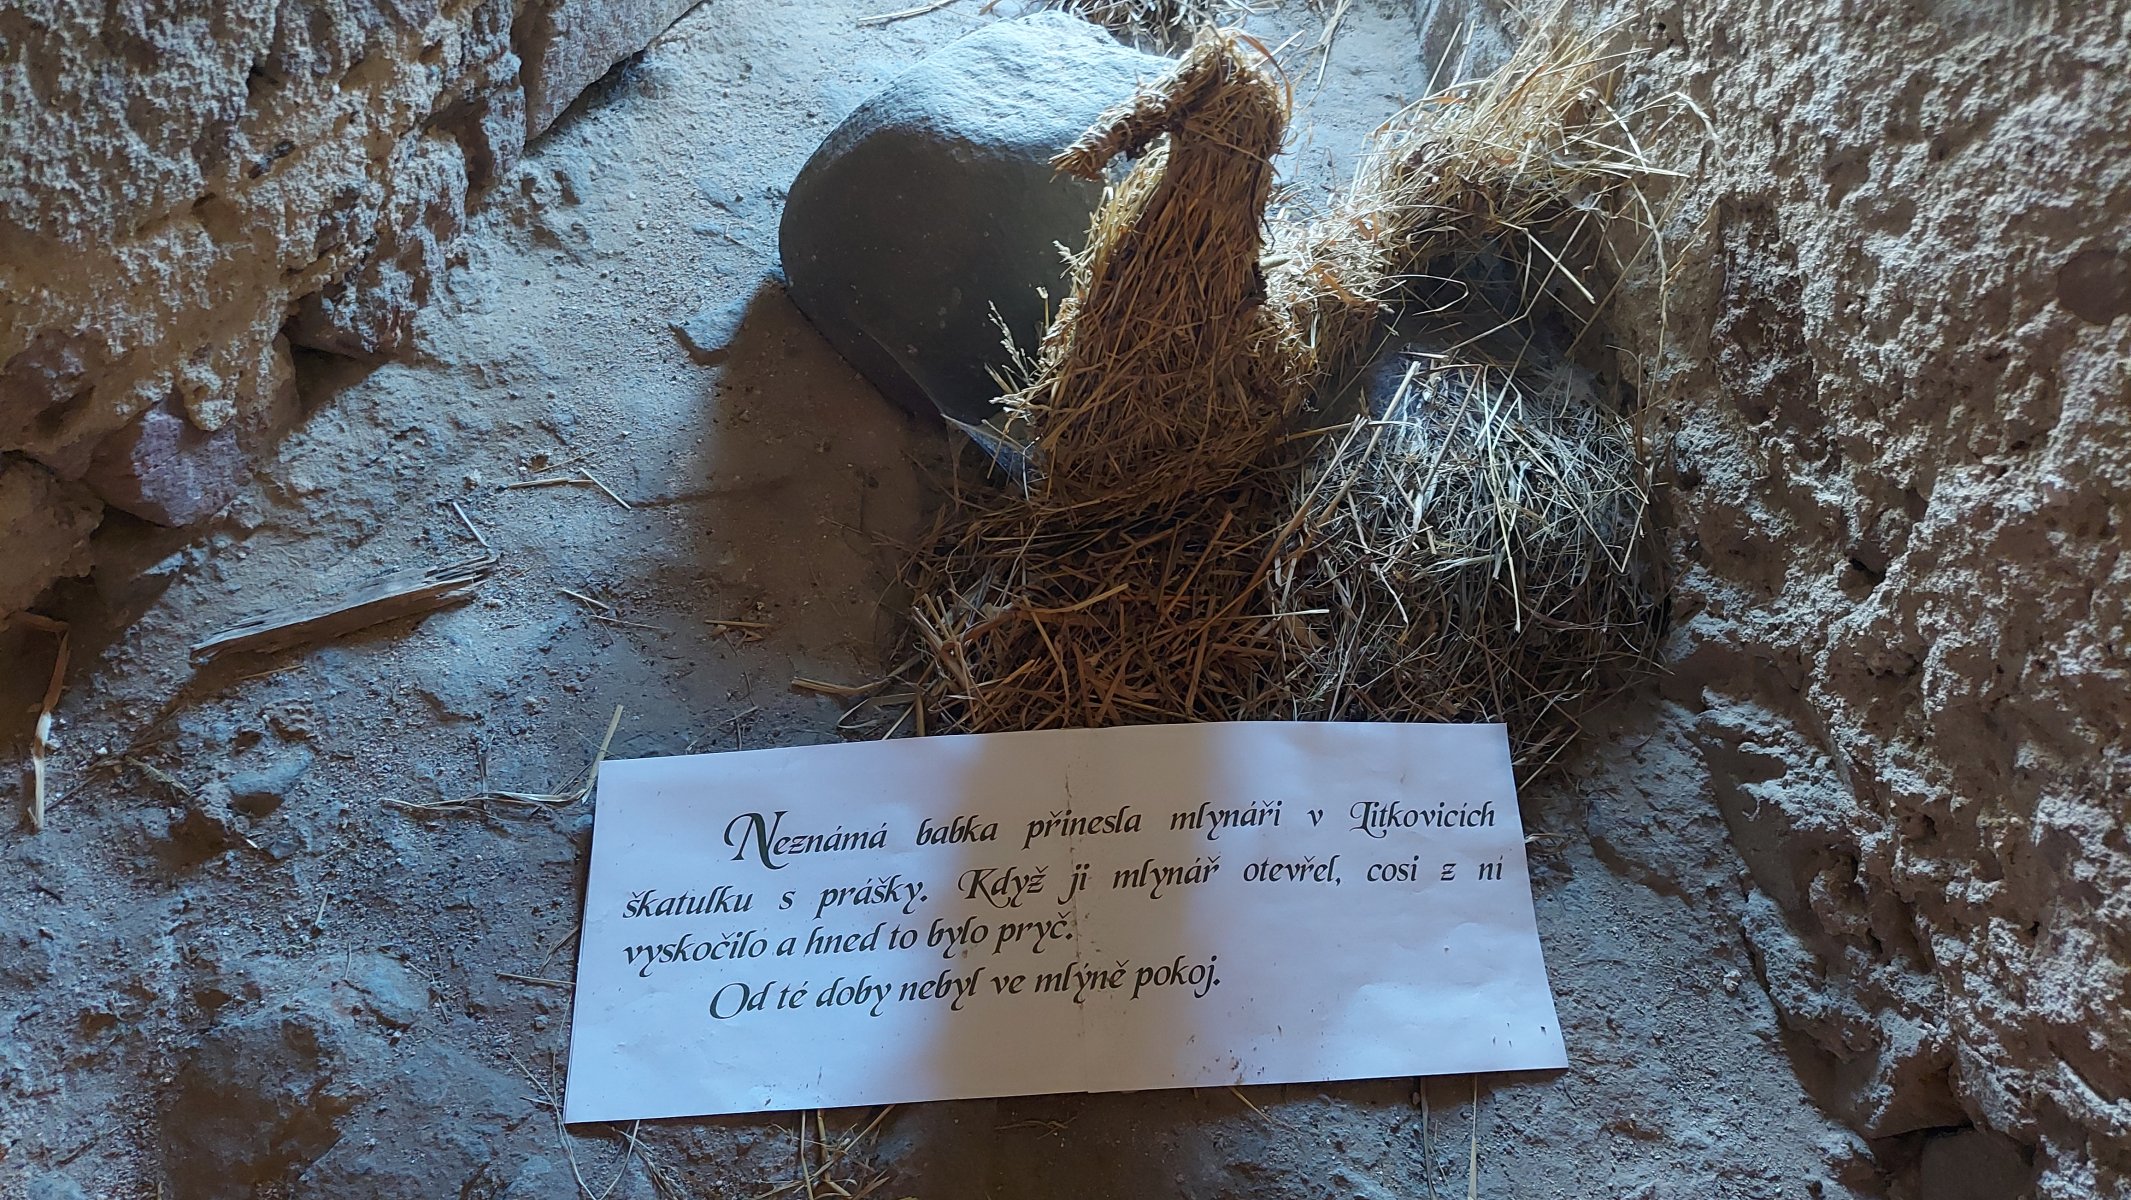 Neznámá babka přinesla mlynáři v Litkovicích
škatulku s prášky. Když ji mlynář otevřel, cosi z ní
vyskočilo a hned to bylo pryč.
Od té doby nebyl ve mlýně pokoj.